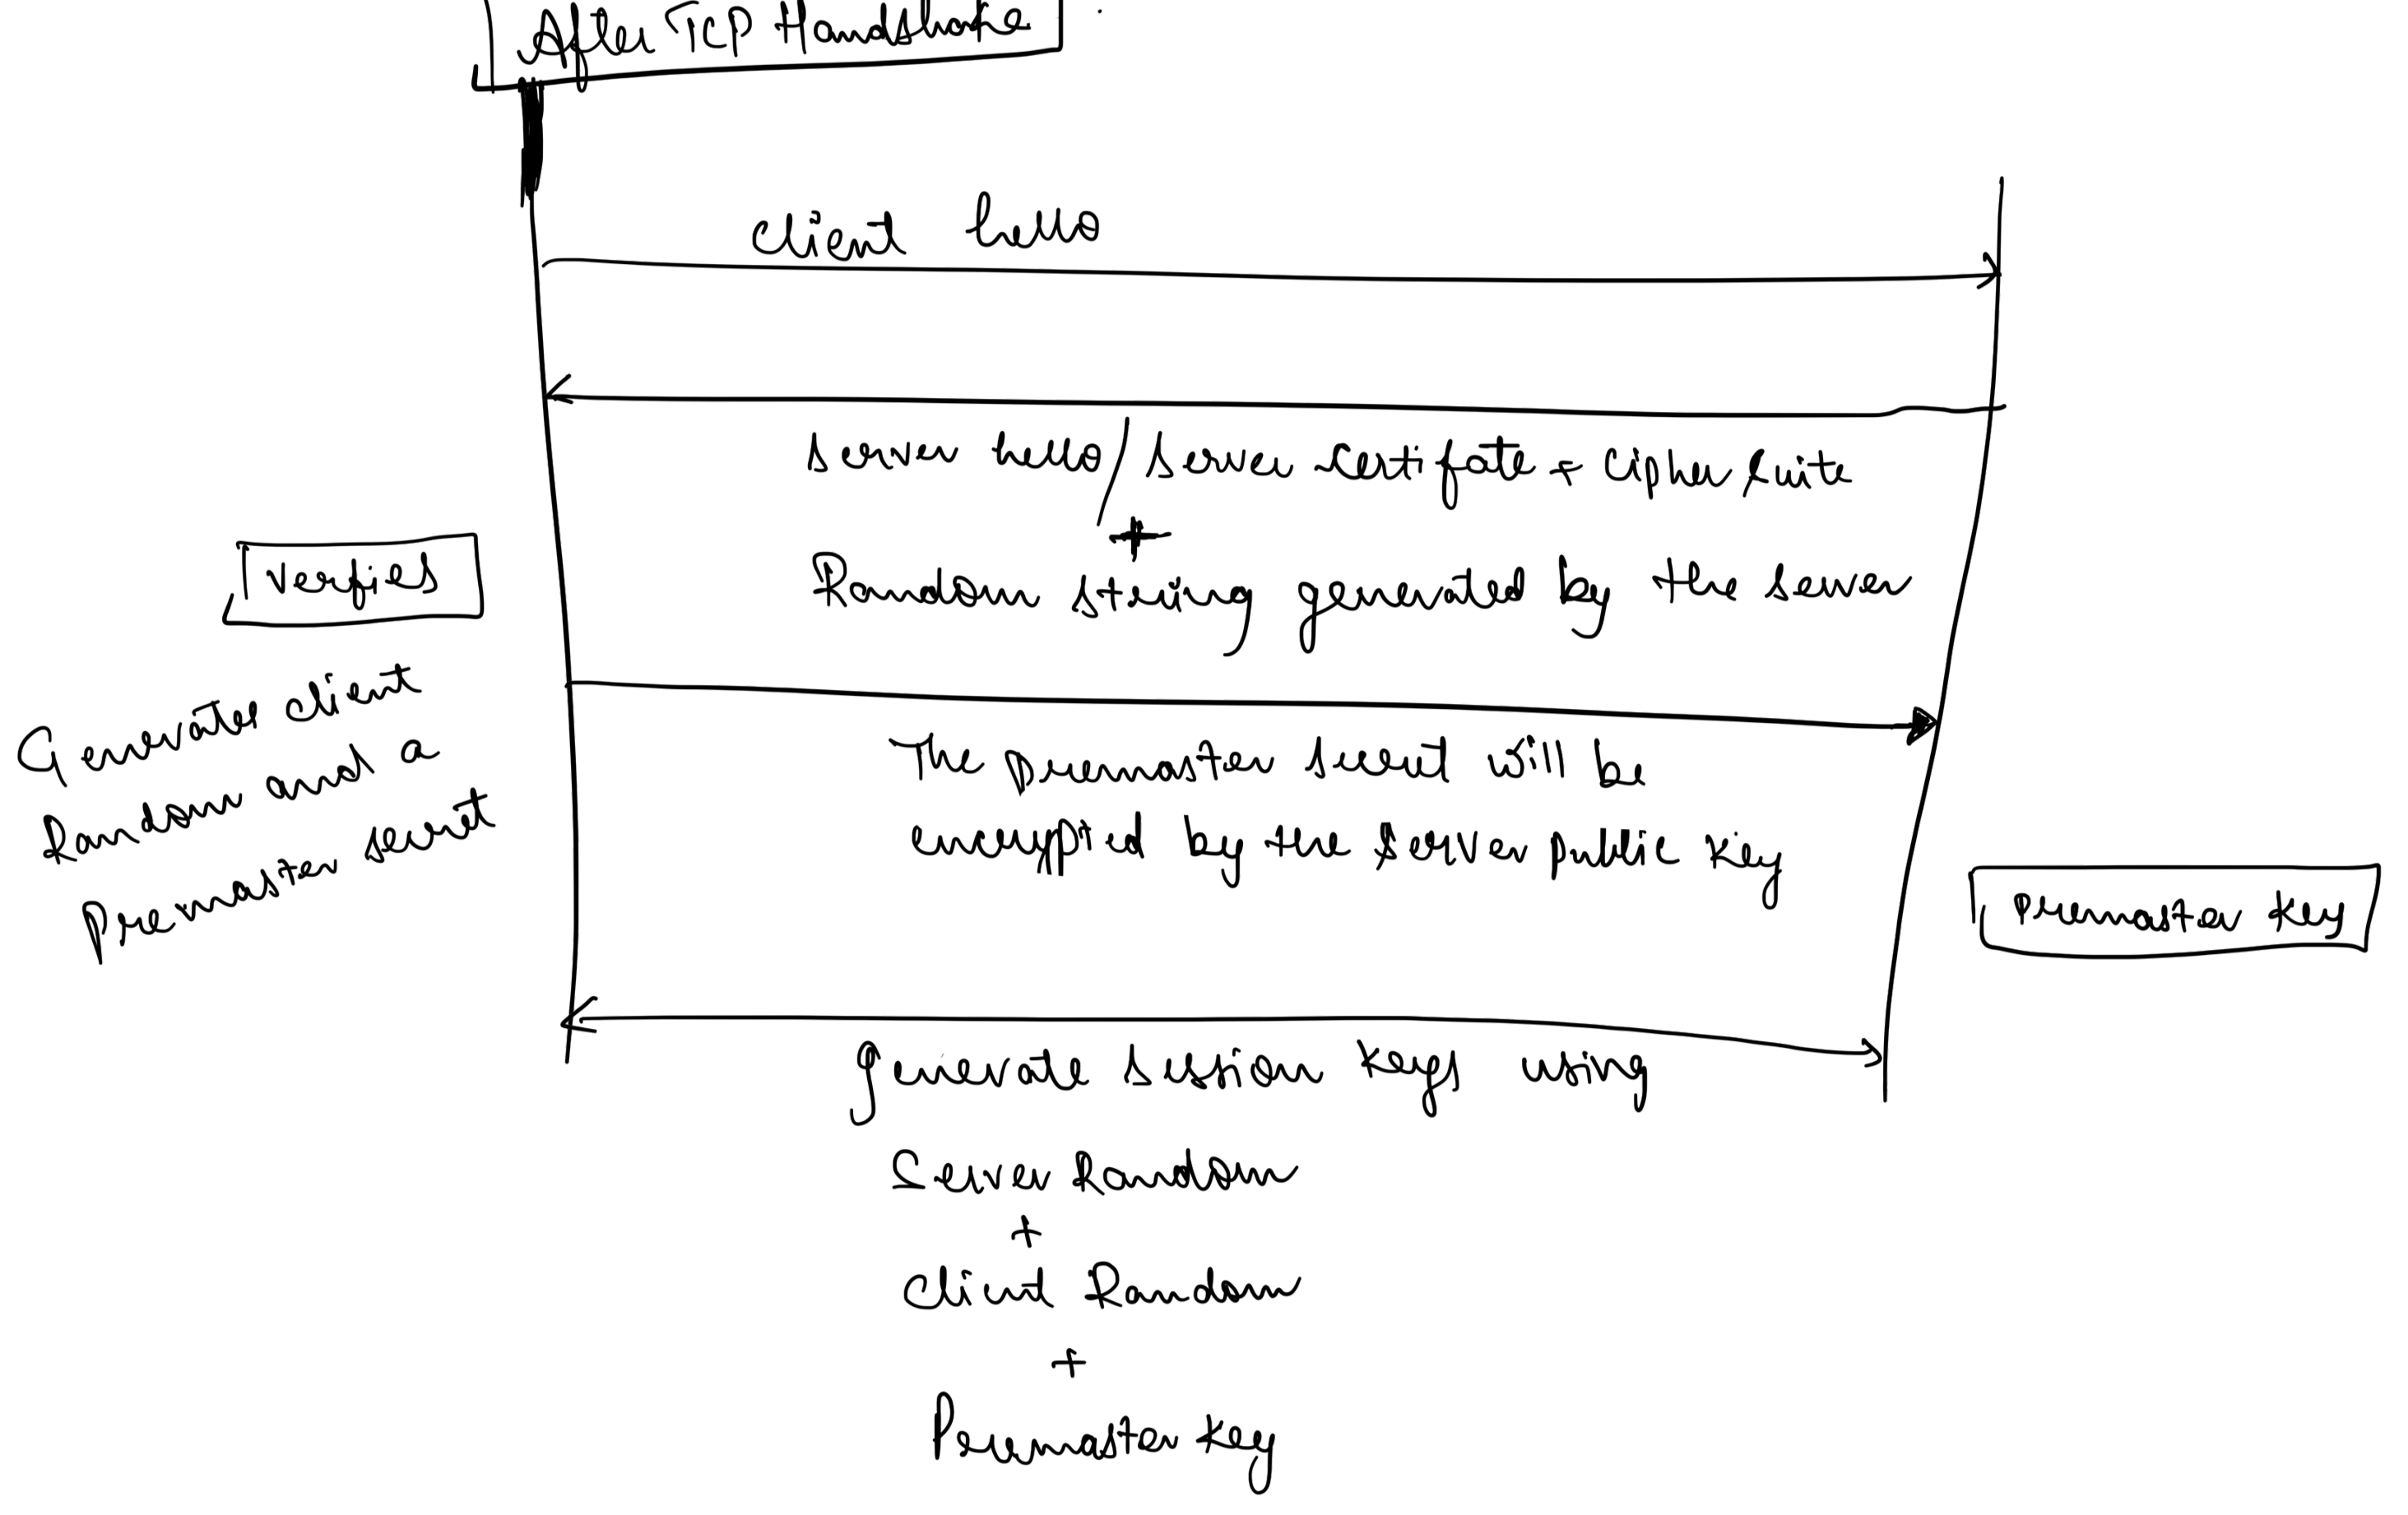 After TCP Handshake
client hello
server hello / server certifate + cipher suite
+
Random string generated by the server
Verfies
Generates client
Random and a
premaster secret
The premaster secret will be
encrypted by the server public key
premaster key
generate session keys using
Server Random
+
Client Random
+
Premaster key